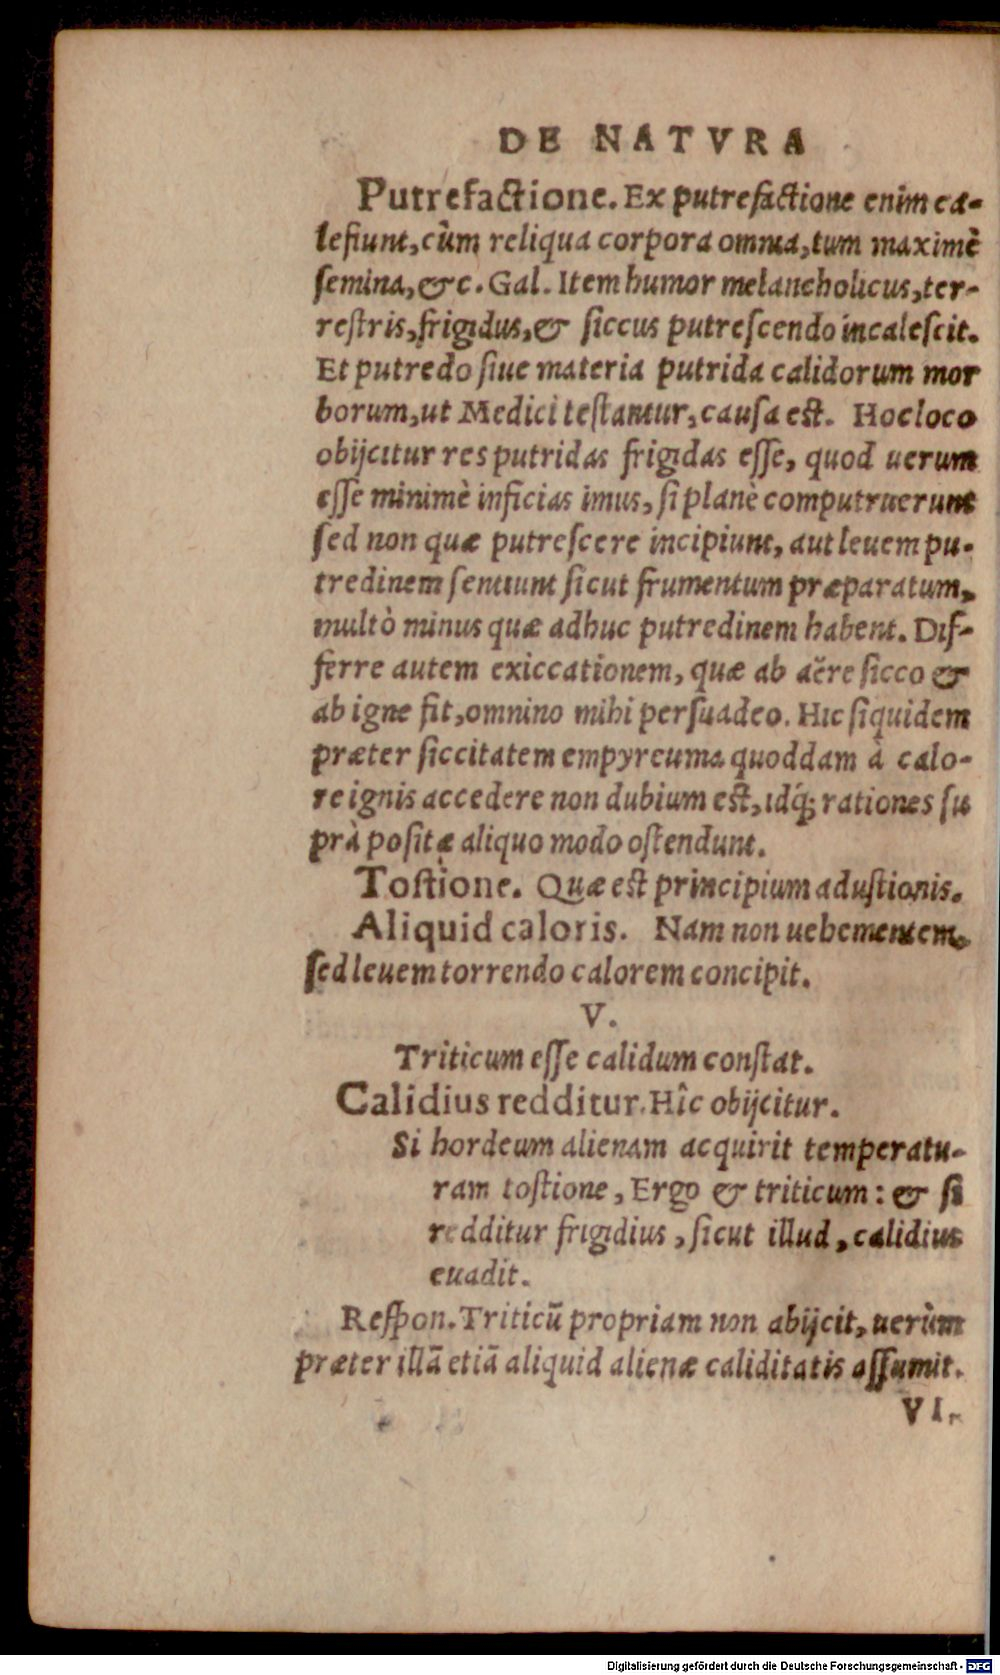 DE NATVRA
Putrefactione. Ex putrefactione enim ca-
lefiunt, cùm reliqua corpora omnia, tum maximè
semina, & c. Gal. Item humor melancholicus, ter-
restris, frigidus, & siccus putrescendo incalescit.
Et putredo siue materia putrida calidorum mor
borum, ut Medici testantur, causa est. Hoc loco
obijcitur res putridas frigidas esse, quod uerum
esse minimè inficias imus, si planè computruerunt
sed non quæ putrescere incipiunt, aut leuem pu-
tredinem sentiunt sicut frumentum præparatum,
multò minus quæ adhuc putredinem habent. Dif-
ferre autem exiccationem, quæ ab aëre sicco &
ab igne fit, omnino mihi persuadeo. Hic siquidem
præter siccitatem empyreuma quoddam à calo-
re ignis accedere non dubium est, idq́; rationes su
prà positę aliquo modo ostendunt.
Tostione. Quæ est principium adustionis.
Aliquid caloris. Nam non uehementem,
sed leuem torrendo calorem concipit.
V.
Triticum esse calidum constat.
Calidius redditur. Hîc obijcitur.
Si hordeum alienam acquirit temperatu-
ram tostione, Ergo & triticum: & si
redditur frigidius, sicut illud, calidius
euadit.
Respon. Triticũ propriam non abijcit, uerùm
præter illã etiã aliquid alienæ caliditatis assumit.
VI.
Digitalisierung gefördert durch die Deutsche Forschungsgemeinschaft - DFG